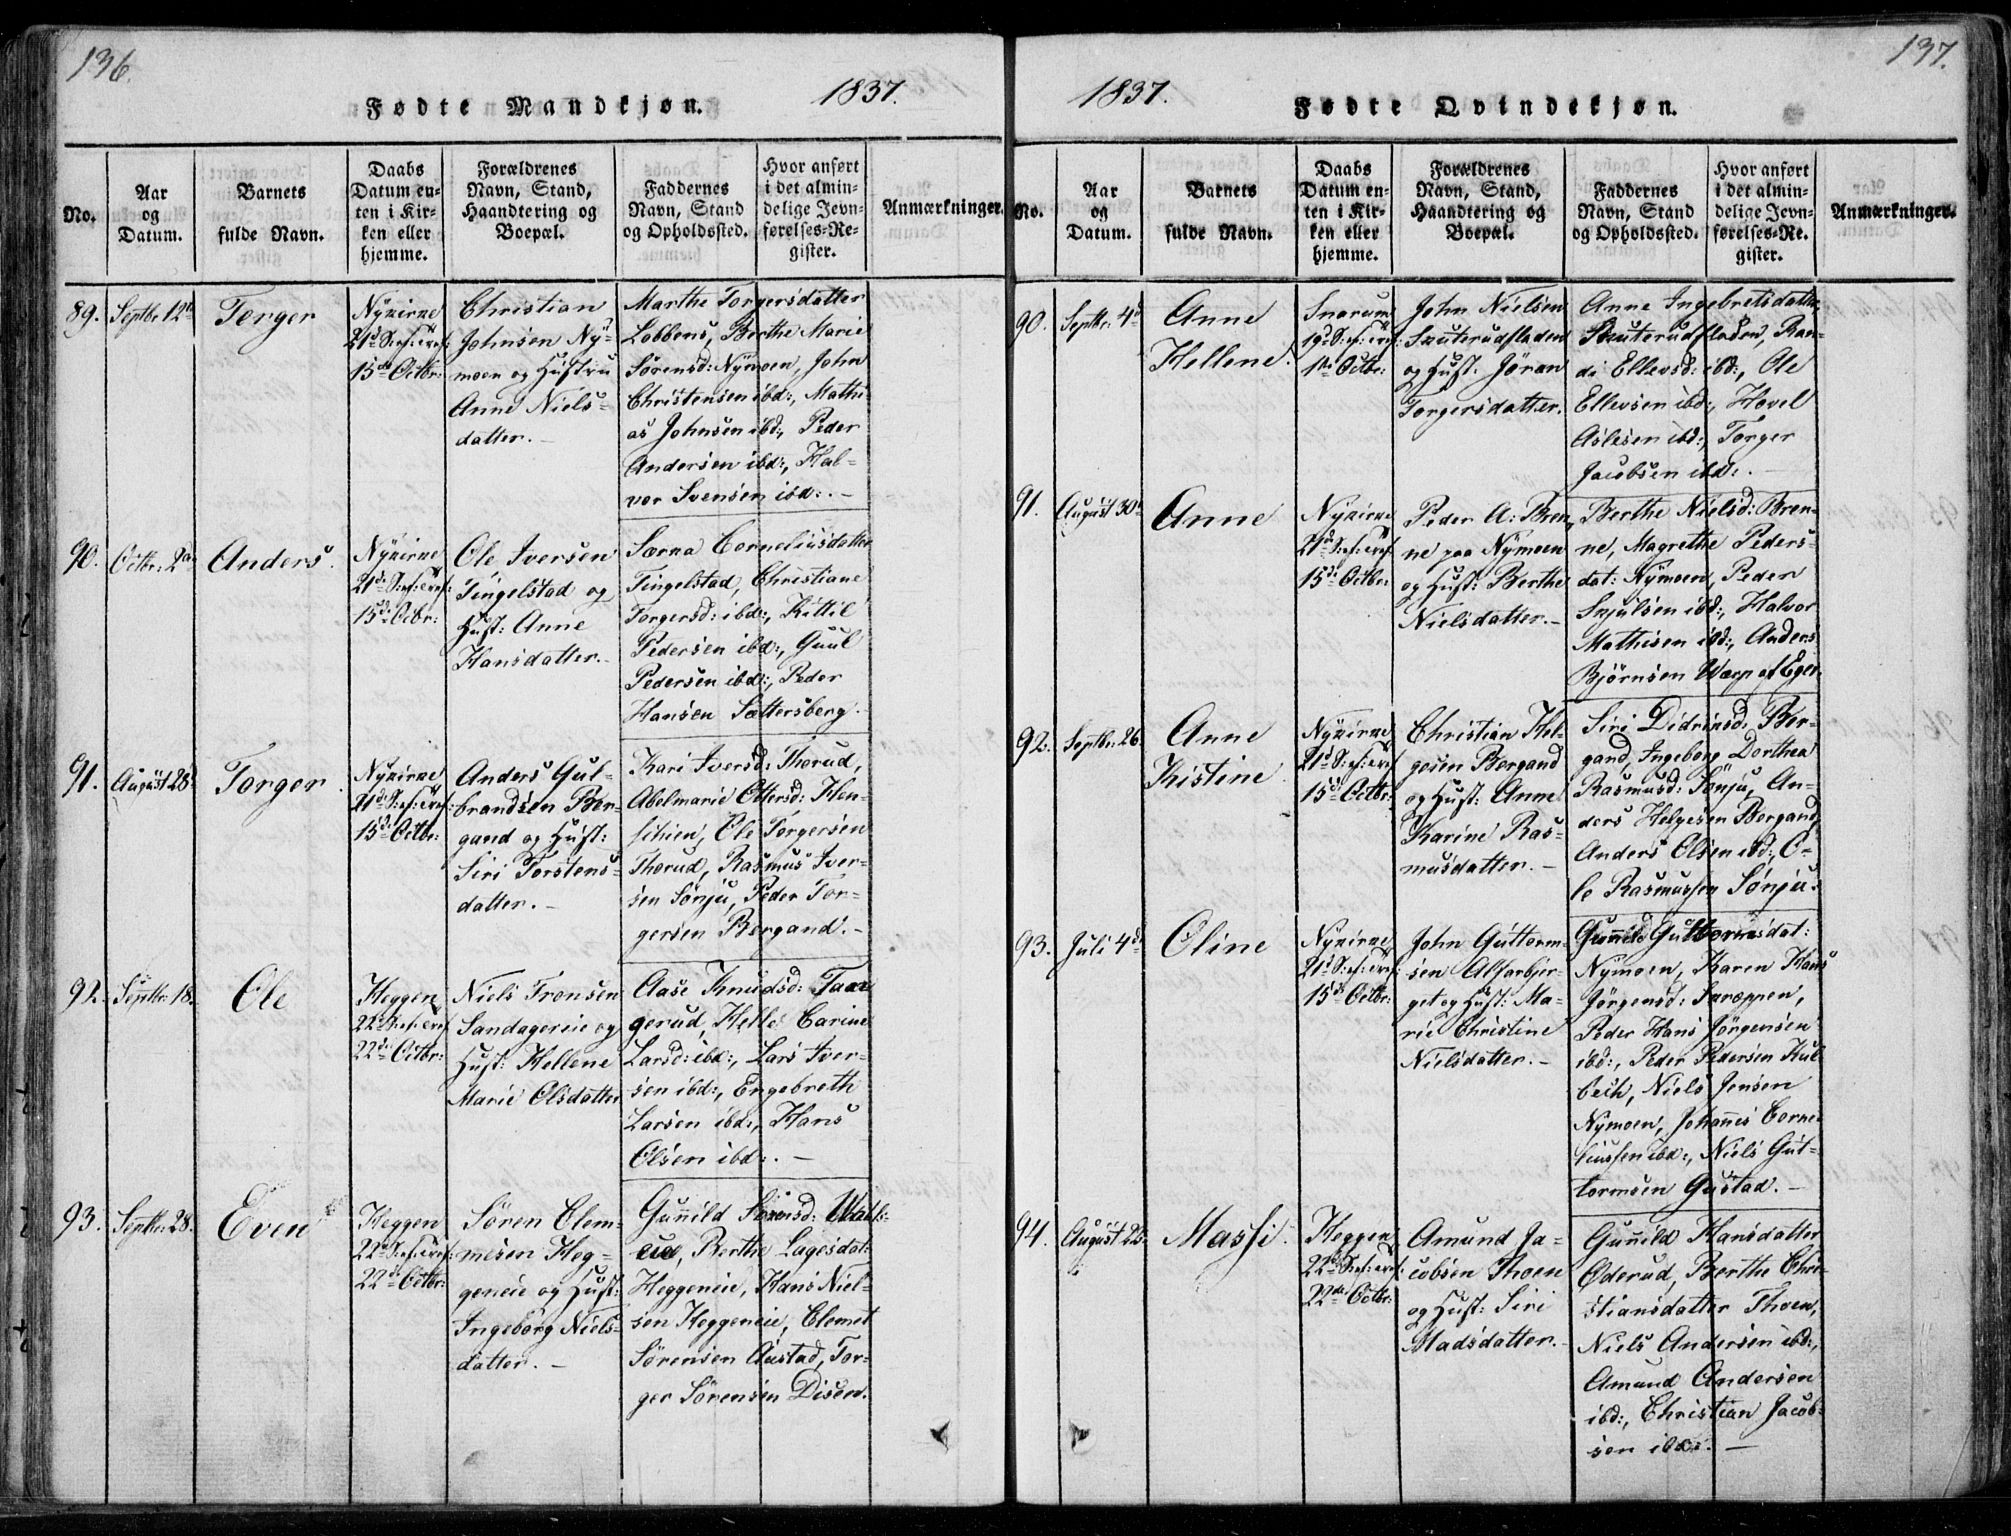 136.
Fødte Mandkjøn.
1837.
No.
Aar
og
Datum.
Barnets
fulde Navn.
Daabs
Datum en-
ten i Kir-
ken eller
hjemme.
Forældrenes
Navn, Stand,
Haandtering og
Boepæl.
Faddernes
Navn, Stand
og Opholdssted.
Hvor anført
i det almin-
delige Jevn-
førelses-Re-
gister.
Anmærkninger.
89.
Septbr: 12te
Torger
Nykirke
21d S: ef: Tref:
15de Octbr:
Christian
Johnsen Ny-
moen og Hustru
Anne Niels-
datter. -
Marthe Torgersdatter
Lobbens, Berthe Marie
Sørensd: Nymoen, John
Christensen ibd:, Mathi-
as Johnsen ibd:, Peder
Andersen ibd:, Hal-
vor Svensen ibd:. -
90.
Octbr: 2den
Anders.
Nykirke
21de S: ef: Tref:
15de Octbr:
Ole Iversen
Tingelstad og
Hust: Anne
Hansdatter. -
Særna Corneliusdatter
Tingelstad, Christiane
Torgersd: ibd:, Kittil
Pedersen ibd:, Guul
Pedersen ibd:, Peder
Hansen Sættersberg.
91.
August 28
Torger.
Nykirke
21de S: ef: Tref:
15de Octbr:
Anders Gul-
brandsen Ber-
gand og Hust:
Siri Torstens-
datter. -
Kari Iversd: Thorud,
Abelmarie Ottersd: Hen-
schien, Ole Torgersen
Thorud, Rasmus Iver-
sen Sønju, Peder Tor-
gersen Bergand. -
92.
Septbr: 18.
Ole
Heggen
22d S: ef: Tref:
22de Octbr:
Niels Tronsen
Sandagereie og
Hust: Hellene
Marie Olsdatter
Aase Knudsd: Taan
gerud, Helle Carine
Larsd: ibd:, Lars Iver-
sen ibd:, Engebreth
Larsen ibd:, Hans
Olsen ibd:. -
93.
Septbr: 28.
Even
Heggen
22d S: ef: Tref:
22de Octbr:
Søren Clem-
metsen Heg-
geneie og Hust:
Ingeborg Niels-
datter. -
Guñild Sørensd:
Berthe Lagesdat:
Heggeneie, Hans Niel-
sen Heggeneie, Clemet
Sørensen Austad, Tor-
ger Sørensen Disen.
137.
1837.
Fødte Qvindekjøn.
No.
Aar
og
Datum.
Barnets
fulde Navn.
Daabs
Datum en-
ten i Kir-
ken eller
hjemme.
Forældrenes
Navn, Stand,
Haandtering og
Boepæl.
Faddernes
Navn, Stand
og Opholdssted.
Hvor anført
i det almin-
delige Jevn-
førelses-Re-
gister.
Anmærkninger.
90.
Septbr: 4d
Anne
Hellene.
Snarum
19d S: ef: Tref:
1ste Octbr:
John Nielsen
Skuterudfladen
og Hust: Jøran
Torgersdatter.
Anne Ingebretsdatter
Skuterudfladen, Ran-
di Ellevsd: ibd:, Ole
Ellevsen ibd:, Hovel
Aslesen ibd:, Torger
Jacobsen ibd:. -
91.
August 30te
Anne
Nykirke
21d S: ef: Tref:
15de Octbr:
Peder A: Bren-
ne paa Nymoen
og Hust: Berthe
Nielsdatter. -
Berthe Nielsd: Bren-
ne, Magrethe Peders-
dat: Nymoen, Peder
Skjulsen ibd:, Halvor
Mathisen ibd:, Anders
Bjørnsen Warp af Eger.
92.
Septbr: 26.
Anne
Kistine
Nykirke
21d S: ef: Tref:
15de Octbr:
Christian Hel-
gesen Bergand
og Hust: Anne
Karine Ras-
musdatter. -
Siri Didriksd: Ber-
gand, Ingeborg Dorthea
Rasmusd: Sønju, An-
ders Helgesen Bergand,
Anders Olsen ibd:, O-
le Rasmussen Sønju.
93.
Juli 4de
Oline
Nykirke
21d S: ef: Tref:
15de Octbr:
John Guttorm-
sen Alfarbjer-
get og Hust: Ma-
rie Christine
Nielsdatter. -
Guñild Guttormsdat:
Nymoen, Karen Hans
Jørgensd: Snroppen,
Peder Hans Jørgensen
ibd:, Peder Pedersen Kul
bech, Niels Jensen
Nymoen, Johañes Corne-
liussen ibd:, Niels Gut-
tormsen Gustad. -
94.
August 25.
Massi.
Heggen
22d S: ef: Tref:
22de Octbr:
Amund Ja-
cobsen Thoen
og Hust: Siri
Madsdatter. -
Guñild Hansdatter
Øderud, Berthe Chri-
stiansdatter Thoen,
Niels Andersen ibd:,
Amund Andersen
ibd:, Christian Jacob-
sen ibd:. -